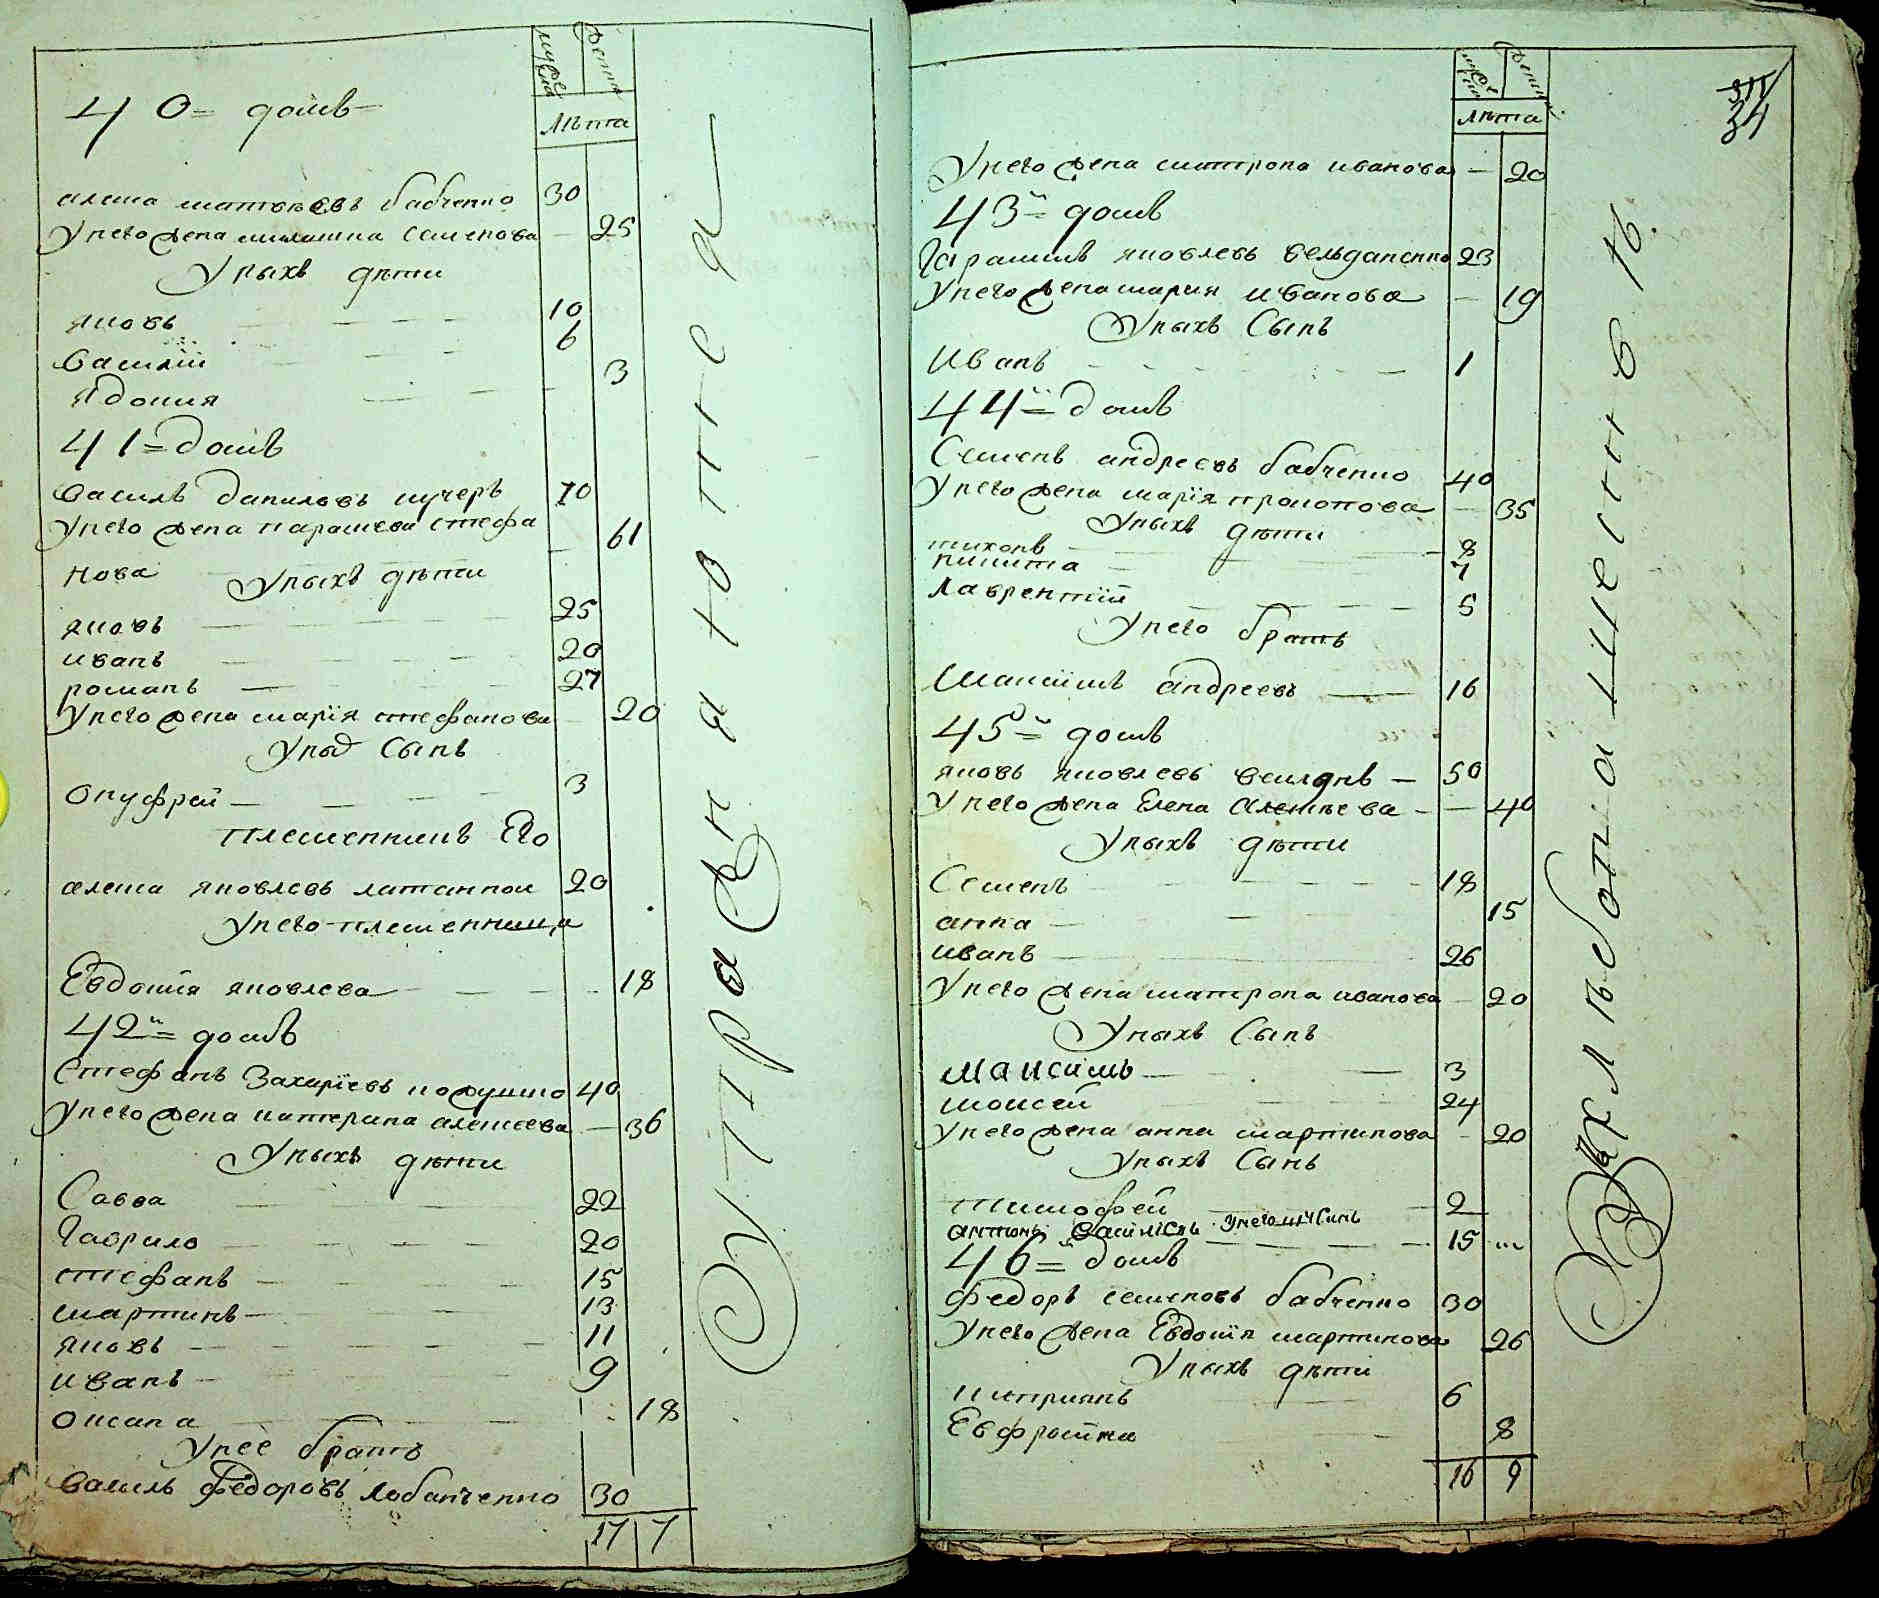 мужес женска
Лѣта
40= домъ
алеша матвѣевъ бабченко 30
Унего жена малашка семенова — 25
Уныхъ дѣти
яковъ 10
василій 6
ядокия 3
41= домъ
василь даниловъ кучеръ 70
Унего жена парасковя стефа
нова — 61
Уныхъ дѣти
яковъ 25
иванъ 20
романъ 27
Унего жена марія стефанова — 20
Уных сынъ
Онуфрей 3
племенникъ Его
алеша яковлевъ 20
Унего племенница
Евдокия яковлева 18
42й= домъ
Стефанъ Захаріевъ 40
Унего жена катерина алексеева — 36
Уныхъ дѣти
Савва 22
Гаврило 20
стефанъ 15
мартинъ 13
яковъ 11
иванъ 9
Оксана 18
Унее братъ
василь Федоровъ лобанченко 30
17 7
мужес женска
лѣта
34
Унего жена матрона иванова — 20
43й= домъ
Гарасимъ яковлевъ 23
Унего жена мария иванова — 19
Уныхъ Сынъ
Иванъ 1
44й= домъ
Семенъ андреевъ бабченко 40
Унего жена марія прокопова — 35
Уныхъ дѣти
тихонъ 8
никита 7
Лаврентій 5
Унего братъ
Максимъ андреевъ 16
45й= домъ
яковъ яковлевъ 50
Унего жена Елена Алексѣева — 40
Уныхъ дѣти
Семенъ 18
анна 15
иванъ 26
Унего жена матрона иванова — 20
Уныхъ Сынъ
Максимъ 3
моисей 24
Унего жена анна мартинова — 20
Уныхъ Сынъ
тимофей 2
антонъ 15
46й= домъ
Федоръ семеновъ бабченко 30
Унего жена Евдокія мартинова 26
Уныхъ дѣти
киприянъ 6
Евфросиния 8
16 9